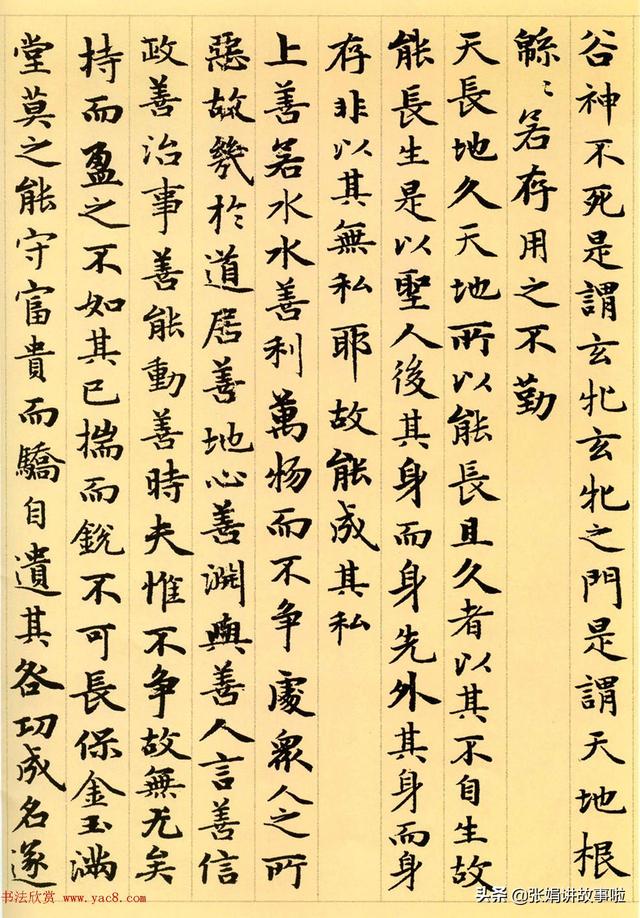 谷神不死是謂玄牝玄牝之門是謂天地根
緜〻若存用之不勤
天長地久天地所以能長且久者以其不自生故
能長生是以聖人後其身而身先外其身而身
存非以其無私耶故能成其私
上善若水水善利萬物而不争處衆人之所
惡故幾於道居善地心善渊與善人言善信
政善治事善能動善時夫惟不争故無尤矣
持而盈之不如其已揣而銳不可長保金玉滿
堂莫之能守富貴而驕自遺其咎功成名遂
书法欣赏 www.yac8.com
头条 @张娟讲故事啦